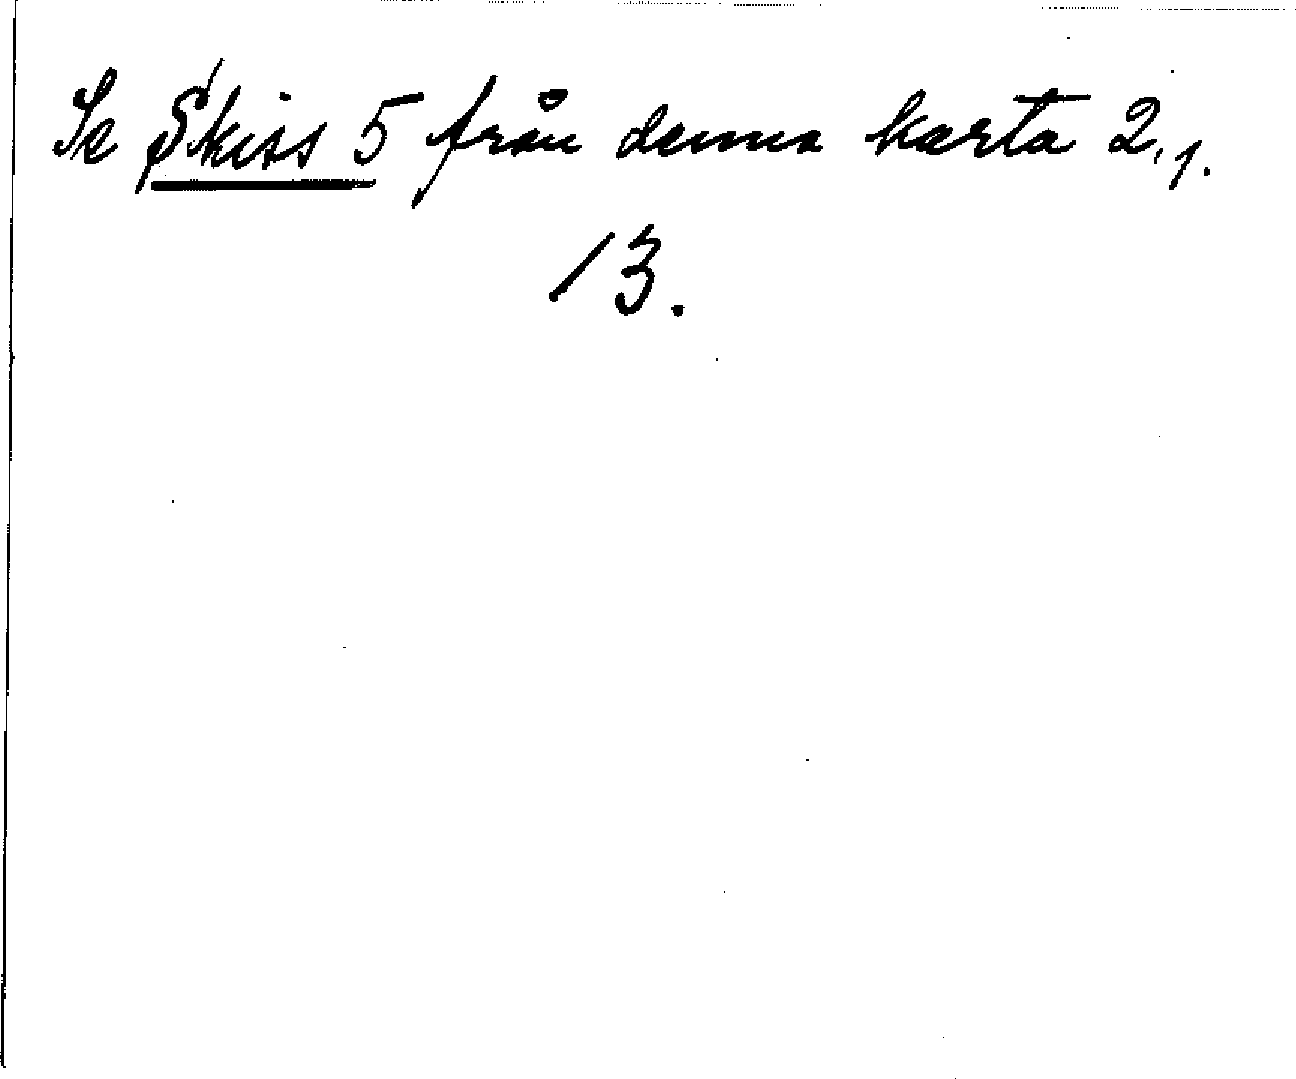 Se Skiss 5 från denna karta 2,1.
13.